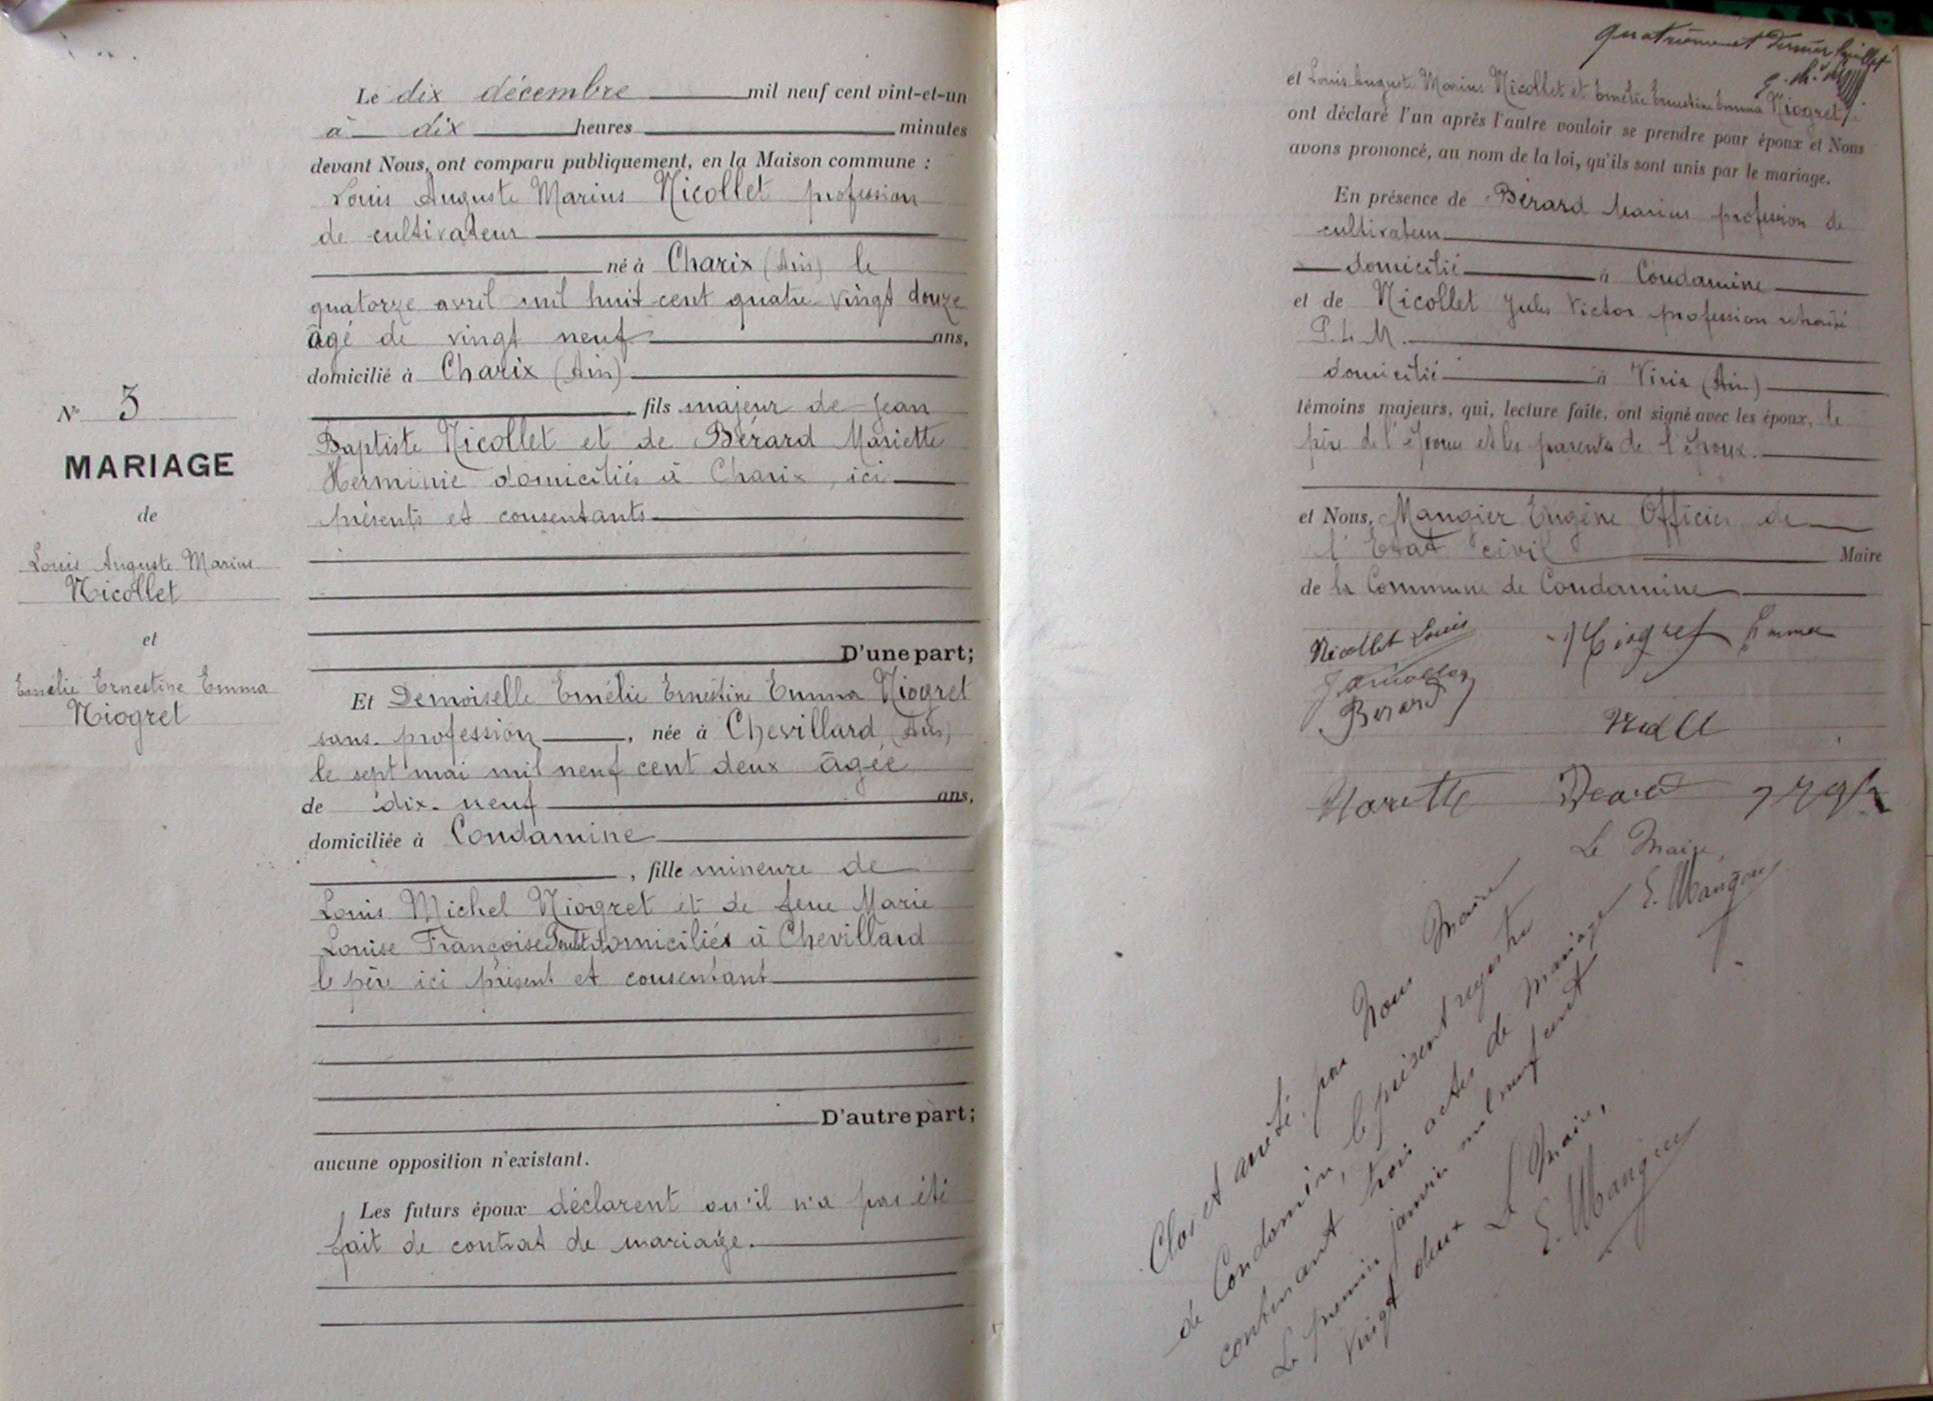 N° 3
MARIAGE
de
Louis Auguste Marius
Nicollet
et
Emélie Ernestine Emma
Niogret
Le dix décembre mil neuf cent vint-et-un
à dix heures minutes
devant Nous, ont comparu publiquement, en la Maison commune :
Louis Auguste Marius Nicollet profession
de cultivateur
né à Charix (Ain) le
quatorze avril mil huit cent quatre vingt douze
âgé de vingt neuf ans,
domicilié à Charix (Ain)
, fils majeur de Jean
Baptiste Nicollet et de Bérard Mariette
Herminie domiciliés à Charix, ici
présents et consentants
D'une part;
Et Demoiselle Emélie Ernestine Emma Niogret
sans profession, née à Chevillard (Ain)
le sept mai mil neuf cent deux âgée
de dix-neuf ans,
domiciliée à Condamine
, fille mineure de
Louis Michel Niogret et de feue Marie
Louise Françoise domiciliés à Chevillard
le père ici présent et consentant
D'autre part;
aucune opposition n'existant.
Les futurs époux déclarent qu'il n'a pas été
fait de contrat de mariage.
quatrième et dernier feuillet
et Louis Auguste Marius Nicollet et Emélie Ernestine Emma Niogret
ont déclaré l'un après l'autre vouloir se prendre pour époux et Nous
avons prononcé, au nom de la loi, qu'ils sont unis par le mariage.
En présence de Bérard Marius profession de
cultivateur
domicilié à Condamine
et de Nicollet Jules Victor profession retraité
P.L.M.
domicilié à (Ain)
témoins majeurs, qui, lecture faite, ont signé avec les époux, le
père de l'épouse et les parents de l'époux.
et Nous, Mangier Eugène Officier de
l'Etat civil Maire
de la Commune de Condamine
Nicollet Louis Niogret Emma
Berard
Mariette Berard
Le Maire,
Clos et arrêté par Nous Maire
de Condamine, le présent registre
contenant trois actes de mariage
Le premier janvier mil neuf cent
vingt deux
Le Maire,